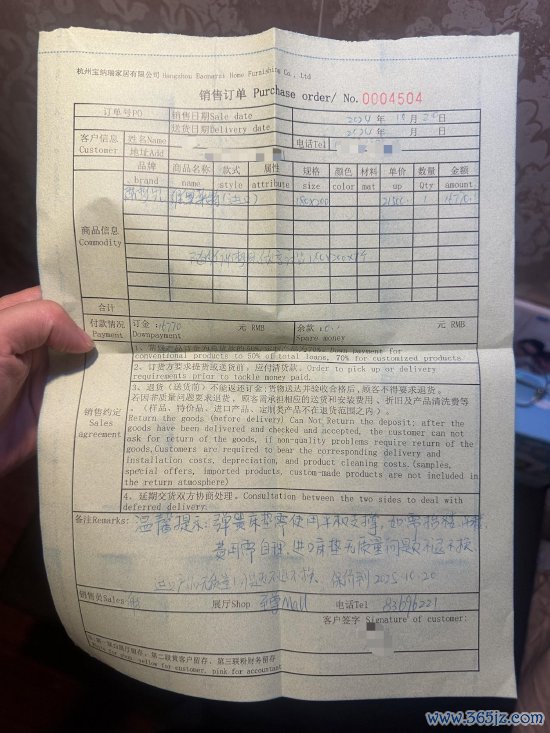 杭州宝纳瑞家居有限公司 Hangzhou Baonarui Home Furnishing Co., Ltd
销售订单 Purchase order/ No. 0004504
订单号PO 销售日期Sale date 2024 年 10 月
送货日期Delivery date 2024 年 月
客户信息 Customer 姓名Name 电话Tel
地址Add
商品信息 Commodity
品牌 商品名称 款式 属性 规格 颜色 材料 单价 数量 金额
brand name style attribute size color mat up Qty amount
180x200 1
合计
付款情况 Payment 订金: 15770 元 RMB 余款: 元 RMB
Downpayment Spare money
销售约定 Sales agreement
conventional products to 50% of total loans, 70% for customized products
2、订货方要求提货或送货前，应付清货款。Order to pick up or delivery
requirements prior to tackle money paid.
3、退货（送货前）不能返还订金；货物送达并验收合格后，顾客不得要求退货。
若因非质量问题要求退货，顾客需承担相应的送货和安装费用、折旧及产品清洗费等
。（样品、特价品、进口产品、定制类产品不在退货范围之内）。
Return the goods (before delivery) Can Not Return the deposit; after the
goods have been delivered and checked and accepted, the customer can not
ask for return of the goods, if non-quality problems require return of the
goods,Customers are required to bear the corresponding delivery and
Installation costs, depreciation, and product cleaning costs.(samples,
special offers, imported products, custom-made products are not included in
the return atmosphere)
4、延期交货双方协商处理。Consultation between the two sides to deal with
deferred delivery.
备注Remarks: 温馨提示: 弹簧床垫需使用平板支撑, 如需
费用需自理, 进口床垫无质量问题不退不换
进口产品无质量问题不退不换、保价到 2025.10.20
销售类Sales 展厅Shop Mall 电话Tel 83696221
客户签字 Signature of customer:
注:第一联白联厅留存，第二联黄客户留存，第三联粉财务留存
yellow for customer, pink for accountant
www.365jz.com